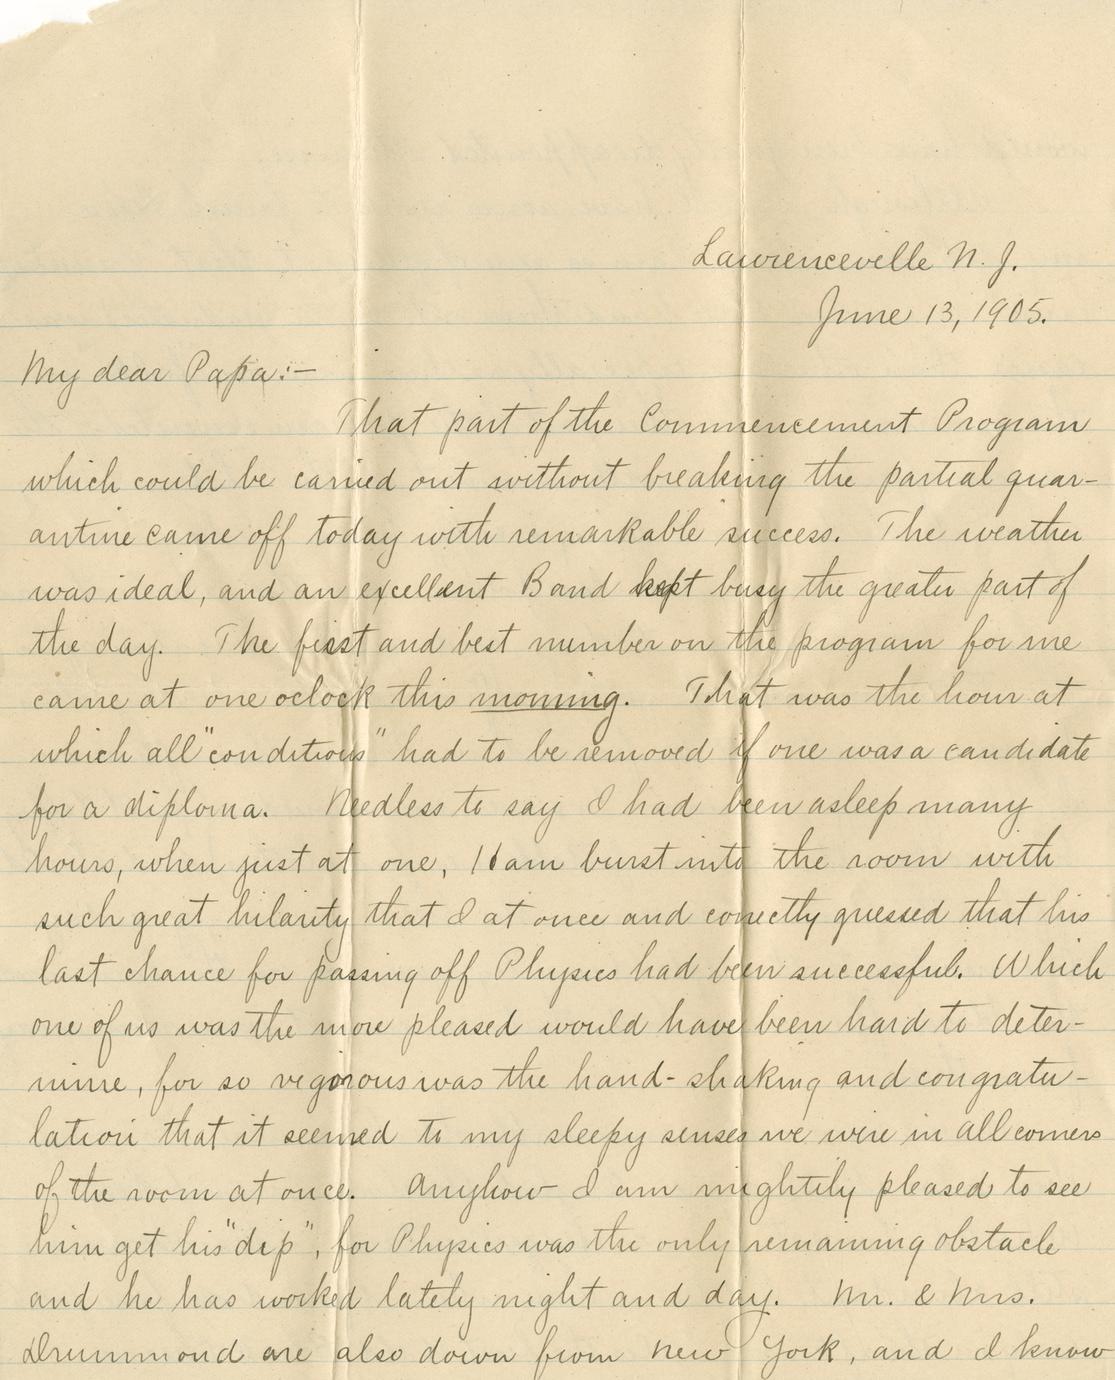 Lawrenceville N. J.
June 13, 1905.
My dear Papa:—
That part of the Commencement Program
which could be carried out without breaking the partial quar-
antine came off today with remarkable success. The weather
was ideal, and an excellent Band kept busy the greater part of
the day. The first and best number on the program for me
came at one oclock this morning. That was the hour at
which all "conditions" had to be removed if one was a candidate
for a diploma. Needless to say I had been asleep many
hours, when just at one, burst into the room with
such great hilarity that I at once and correctly guessed that his
last chance for passing off Physics had been successful. Which
one of us was the more pleased would have been hard to deter-
mine, for so vigorous was the hand-shaking and congratu-
lation that it seemed to my sleepy senses we were in all corners
of the room at once. Anyhow I am mightily pleased to see
him get his "dip", for Physics was the only remaining obstacle
and he has worked lately night and day. Mr. & Mrs.
Drummond are also down from New York, and I know